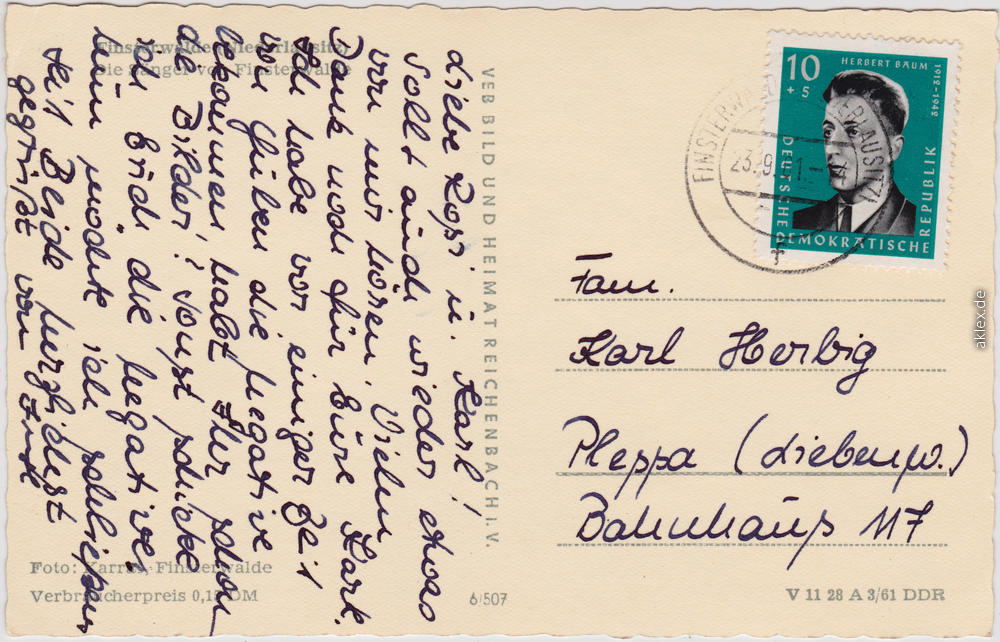 Finsterwalde (Niederlausitz)
Die Sänger von Finsterwalde
Liebe Rosi u. Karl!
Sollt auch wieder etwas
von mir hören. Vielen
Dank noch für Eure Kart.
Ich habe vor einiger Zeit
die Negative
bekommen habt Ihr schon
die Bilder? Sonst schicke
ich Euch die Negative.
Nun möchte ich schließen
Seit Beide herzlichst
gegrüßt von
VEB BILD UND HEIMAT REICHENBACH i. V.
Foto: Karras, Finsterwalde
Verbraucherpreis 0,15 DM
6/507
10
+ 5
HERBERT BAUM
1912-1942
DEUTSCHE
DEMOKRATISCHE
REPUBLIK
FINSTERWALDE (NIEDERLAUSITZ)
23.9.61
Fam.
Karl Herbig
Pleppa (Liebenw.)
Bahnhaus 117
V 11 28 A 3/61 DDR
aklex.de